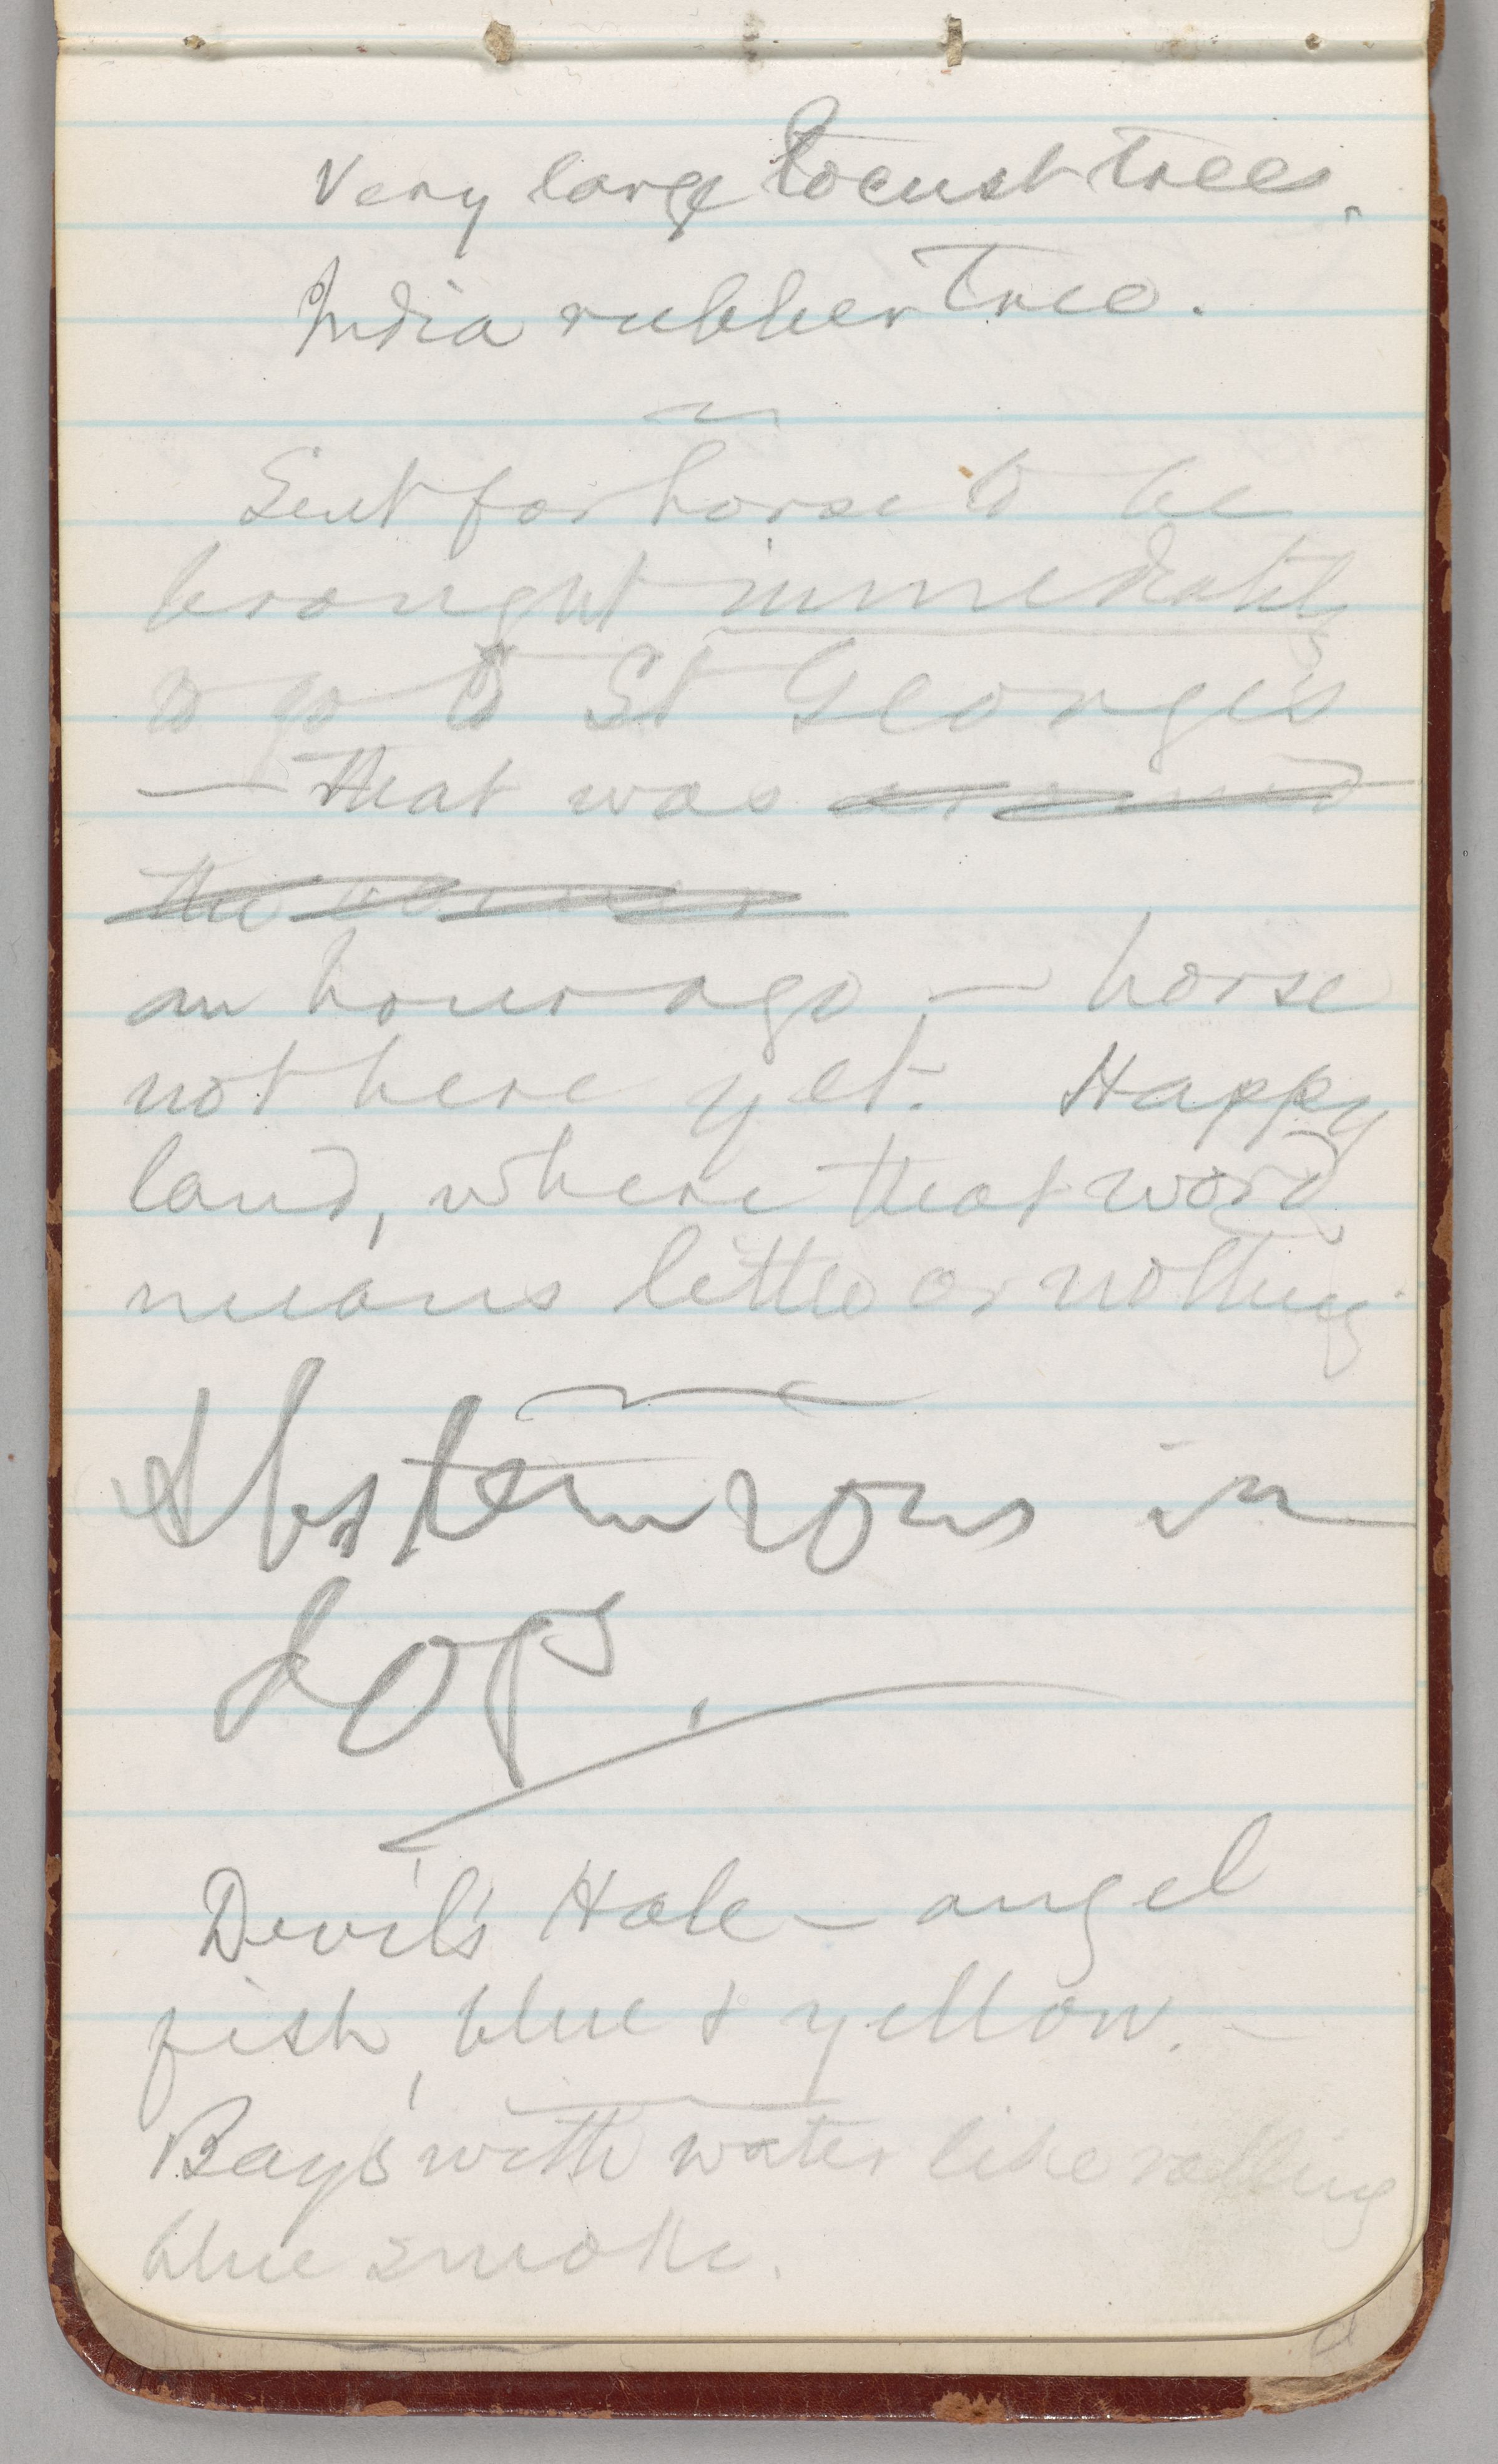 Very large locust trees.
India rubber tree.
Sent for horse to be
brought immediately
to go to St George's
— that was around
the corner
an hour ago — horse
not here yet. Happy
land, where that word
means little or nothing.
Abstemious in
dogs.
Devil's Hole — angel
fish, blue & yellow. —
Bays with water like rolling
blue smoke.